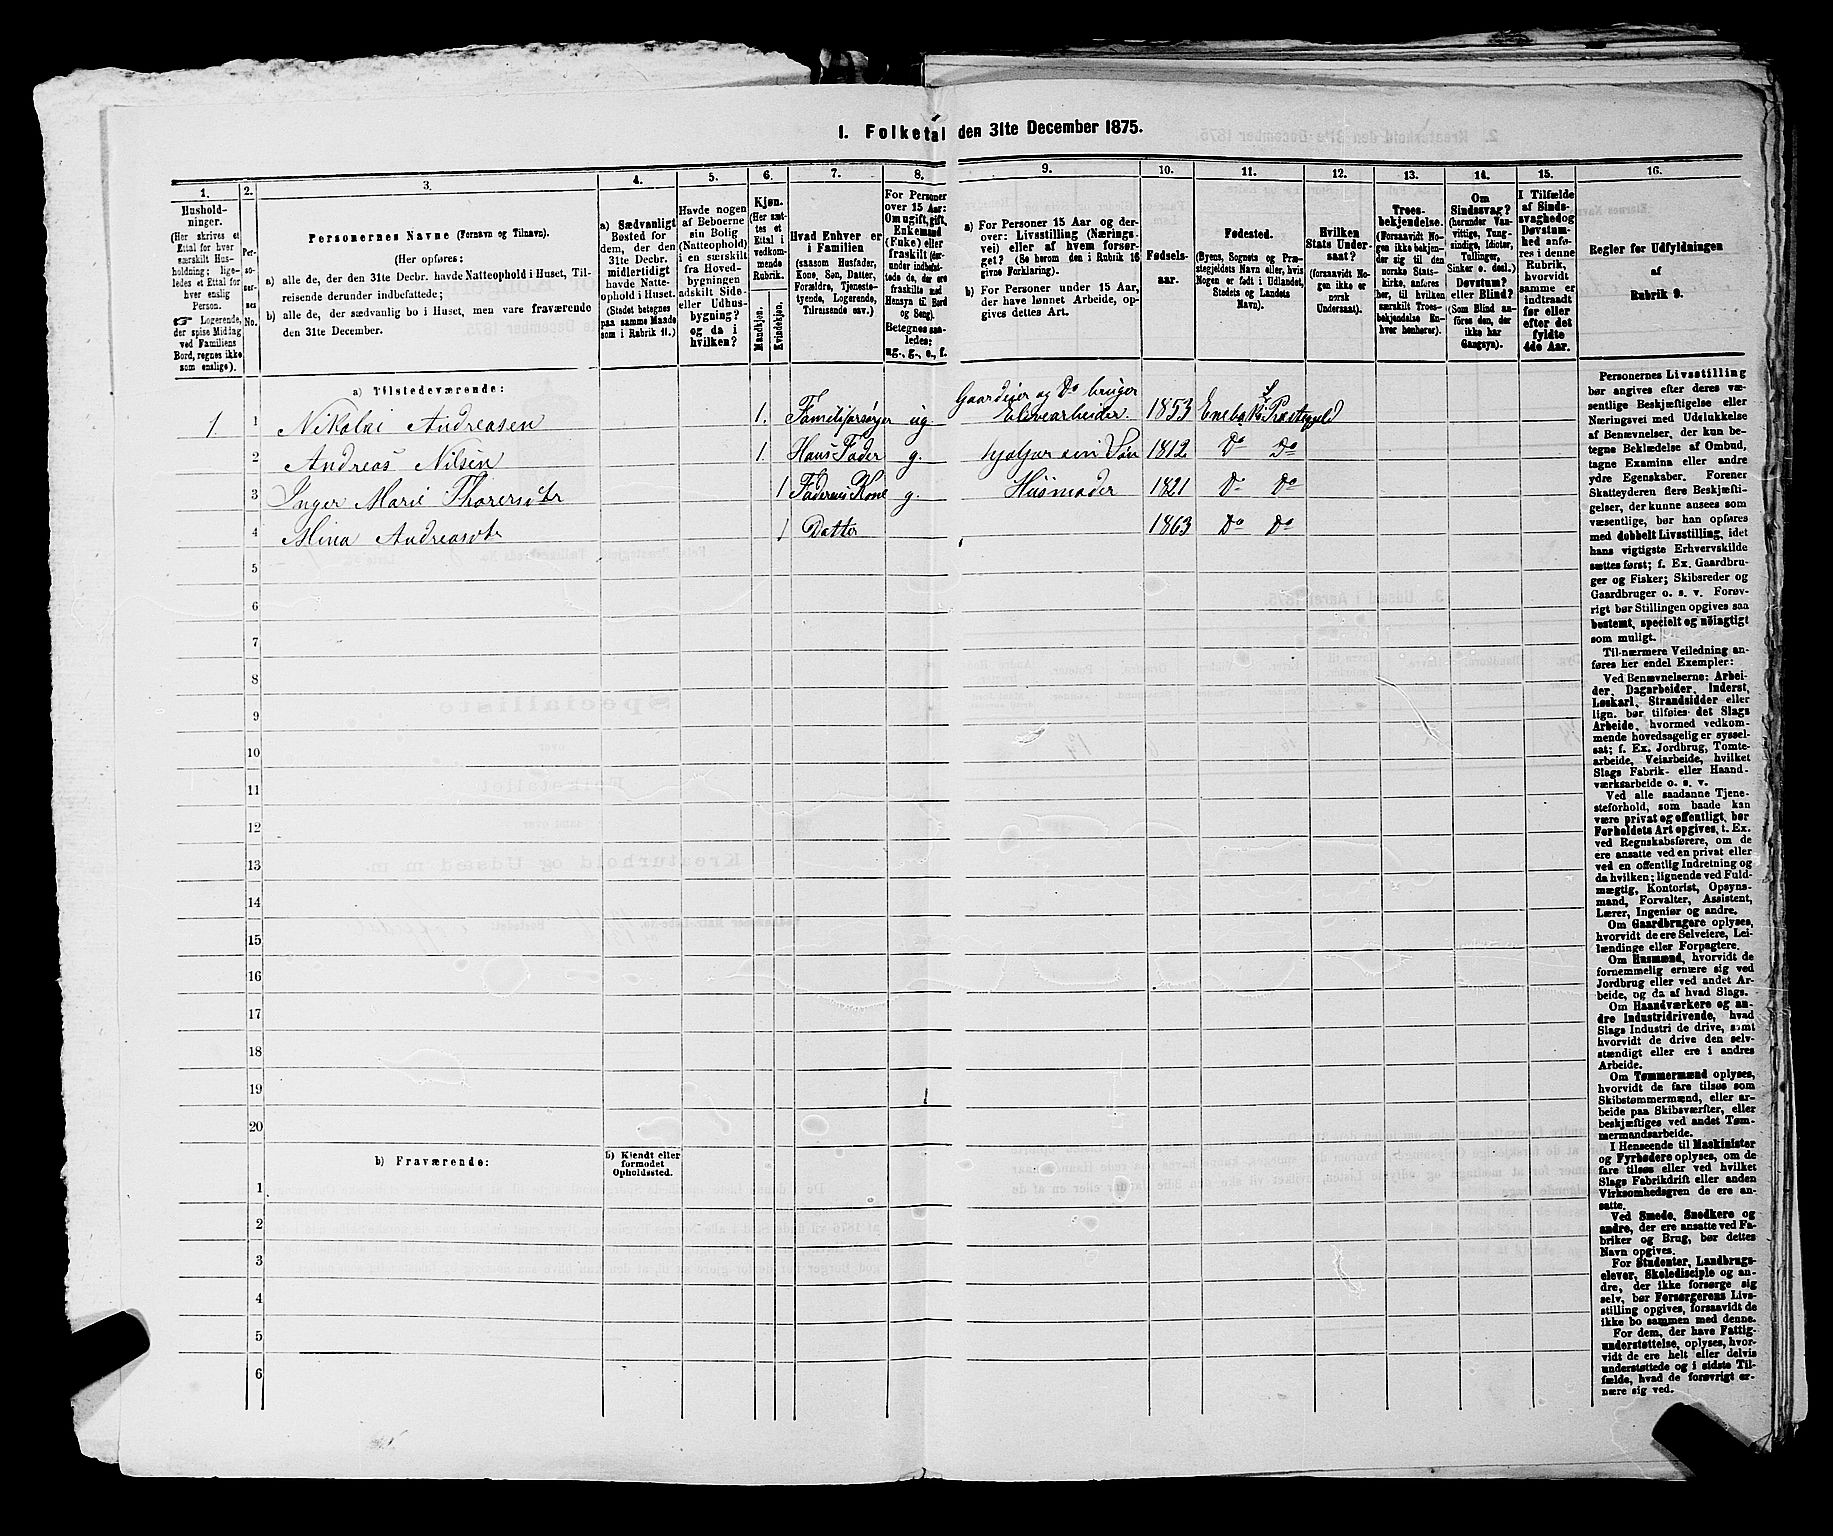 1. Folketal den 31te December 1875.
1. 2. 3. 4. 5. 6. 7. 8. 9. 10. 11. 12. 13. 14. 15. 16.
Hushold-
ninger.
(Her skrives et
Ettal for hver
særskilt Hus-
holdning; lige-
ledes et Ettal for
hver enslig
Person.
☞ Logerende,
der spise Middag
ved Familiens
Bord, regnes ikke
som enslige).
Per-
so-
ner-
nes
No.
Personernes Navne (Fornavn og Tilnavn).
(Her opføres:
a) alle de, der den 31te Decbr. havde Natteophold i Huset, Til-
reisende derunder indbefattede;
b) alle de, der sædvanlig bo i Huset, men vare fraværende
den 31te December.
a) Sædvanligt
Bosted for
dem, der den
31te Decbr.
midlertidigt
havde Natte-
ophold i Huset.
(Stedet betegnes
paa samme Maade
som i Rubrik 11.)
Havde nogen
af Beboerne
sin Bolig
(Natteophold)
i en særskilt
fra Hoved-
bygningen
adskilt Side-
eller Udhus-
bygning?
og da i
hvilken?
Kjøn.
(Her sæt-
tes et
Ettal i
vedkom-
mende
Rubrik.
Mandkjøn.
Kvindekjøn.
Hvad Enhver er
i Familien
(saasom Husfader,
Kone, Søn, Datter,
Forældre, Tjeneste-
tyende, Logerende,
Tilreisende osv.)
For Personer
over 15 Aar:
Om ugift, gift,
Enkemand
(Enke) eller
fraskilt (der-
under indbefat-
tede de, der ere
fraskilte med
Hensyn til Bord
og Seng).
Betegnes saa-
ledes:
ug., g., e., f.
a) For Personer 15 Aar og der-
over: Livsstilling (Nærings-
vei) eller af hvem forsør-
get? (Se herom den i Rubrik 16
givne Forklaring).
b) For Personer under 15 Aar,
der have lønnet Arbeide, op-
gives dettes Art.
Fødsels-
aar.
Fødested.
(Byens, Sognets og Præ-
stegjeldets Navn eller, hvis
Nogen er født i Udlandet,
Stedets og Landets
Navn).
Hvilken
Stats Under-
saat?
(forsaavidt No-
gen ikke er
norsk
Undersaat).
Troes-
bekjendelse.
(Forsaavidt No-
gen ikke bekjen-
der sig til den
norske Stats-
kirke, anføres
her, til hvilken
særskilt Troes-
bekjendelse En-
hver henhører).
Om
Sindssvag?
(herunder Van-
vittige, Tung-
sindige, Idioter,
Tullinger,
Sinker o. desl.)
Døvstum?
eller Blind?
(Som Blind an-
føres den, der
ikke har
Gangsyn).
I Tilfælde
af Sinds-
svaghed og
Døvstum-
hed anfø-
res i denne
Rubrik,
hvorvidt
samme er
indtraadt
før eller
efter det
fyldte
4de Aar.
Regler for Udfyldningen
af
Rubrik 9.
a) Tilstedeværende:
1 1 Nikolai Andreasen 1. Familjforsørger ug. Gaardeier og Do bruger Elvearbeider. 1853 Enebak Præstegjeld
2 Andreas Nilsen 1. Haus Fader g. hjælper sin Søn 1812 Do Do
3 Inger Marie Thorersdtr 1 Faderens Kone g. Husmoder 1821 Do Do
4 Mina Andreasdtr 1 Datter 1863 Do Do
5
6
7
8
9
10
11
12
13
14
15
16
17
18
19
20
b) Fraværende:
b) Kjendt eller
formodet
Opholdssted.
1
2
3
4
5
6
Personernes Livsstilling
bør angives efter deres væ-
sentlige Beskjæftigelse eller
Næringsvei med Udelukkelse
af Benævnelser, der kun be-
tegne Beklædelse af Ombud,
tagne Examina eller andre
ydre Egenskaber. Forener
Skatteyderen flere Beskjæfti-
gelser, der kunne ansees som
væsentlige, bør han opføres
med dobbelt Livsstilling, idet
hans vigtigste Erhvervskilde
sættes først; f. Ex. Gaardbru-
ger og Fisker; Skibsreder og
Gaardbruger o. s. v. Forøv-
rigt bør Stillingen opgives saa
bestemt, specielt og nøiagtigt
som muligt.
Til nærmere Veiledning an-
føres her endel Exempler:
Ved Benævnelserne: Arbei-
der, Dagarbeider, Inderst,
Løskarl, Strandsidder eller
lign. bør tilføies det Slags
Arbeide, hvormed vedkom-
mende hovedsagelig er syssel-
sat; f. Ex. Jordbrug, Tomte-
arbeide, Veiarbeide, hvilket
Slags Fabrik- eller Haand-
værksarbeide o. s. v.
Ved alle saadanne Tjene-
steforhold, som baade kan
være privat og offentligt, bør
Forholdets Art opgives, t. Ex.
ved Regnskabsførere, om de
ere ansatte ved en privat eller
ved en offentlig Indretning og
da hvilken; lignende ved Fuld-
mægtig, Kontorist, Opsyns-
mand, Forvalter, Assistent,
Lærer, Ingeniør og andre.
Om Gaardbrugere oplyses,
hvorvidt de ere Selveiere, Lei-
lændinge eller Forpagtere.
Om Husmænd, hvorvidt de
fornemmelig ernære sig ved
Jordbrug eller ved andet Ar-
beide, og da af hvad Slags.
Om Haandværkere og an-
dre Industridrivende, hvad
Slags Industri de drive, samt
hvorvidt de drive den selv-
stændigt eller ere i andres
Arbeide.
Om Tømmermænd oplyses,
hvorvidt de fare tilsøs som
Skibstømmermænd, eller ar-
beide paa Skibsværfter, eller
beskjæftiges ved andet Tøm-
mermandsarbeide.
I Henseende til Maskinister
og Fyrbødere oplyses, om de
fare tilsøs eller ved hvilket
Slags Fabrikdrift eller anden
Virksomhedsgren de ere an-
satte.
Ved Smede, Snedkere og
andre, der ere ansatte ved Fa-
briker og Brug, bør dettes
Navn opgives.
For Studenter, Landbrugs-
elever, Skoledisciple og an-
dre, der ikke forsørge sig
selv, bør Forsørgerens Livs-
stilling opgives, forsaavidt de
ikke bo sammen med denne.
For dem, der have Fattig-
understøttelse, oplyses, hvor-
vidt de ere helt eller delvis
understøttede og i sidste Til-
fælde, hvad de forøvrigt er-
nære sig ved.